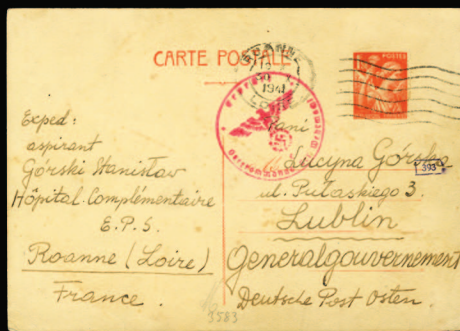 CARTE POSTALE
ROANNE
1941
POSTES
Exped:
aspirant
Górski Stanisław
Hôpital Complémentaire
E.P.S.
Roanne (Loire)
France.
Pani
Lucyna Górska
ul. Pułaskiego 3.
Lublin
Generalgouvernement
Deutsche Post Osten.
393
3583